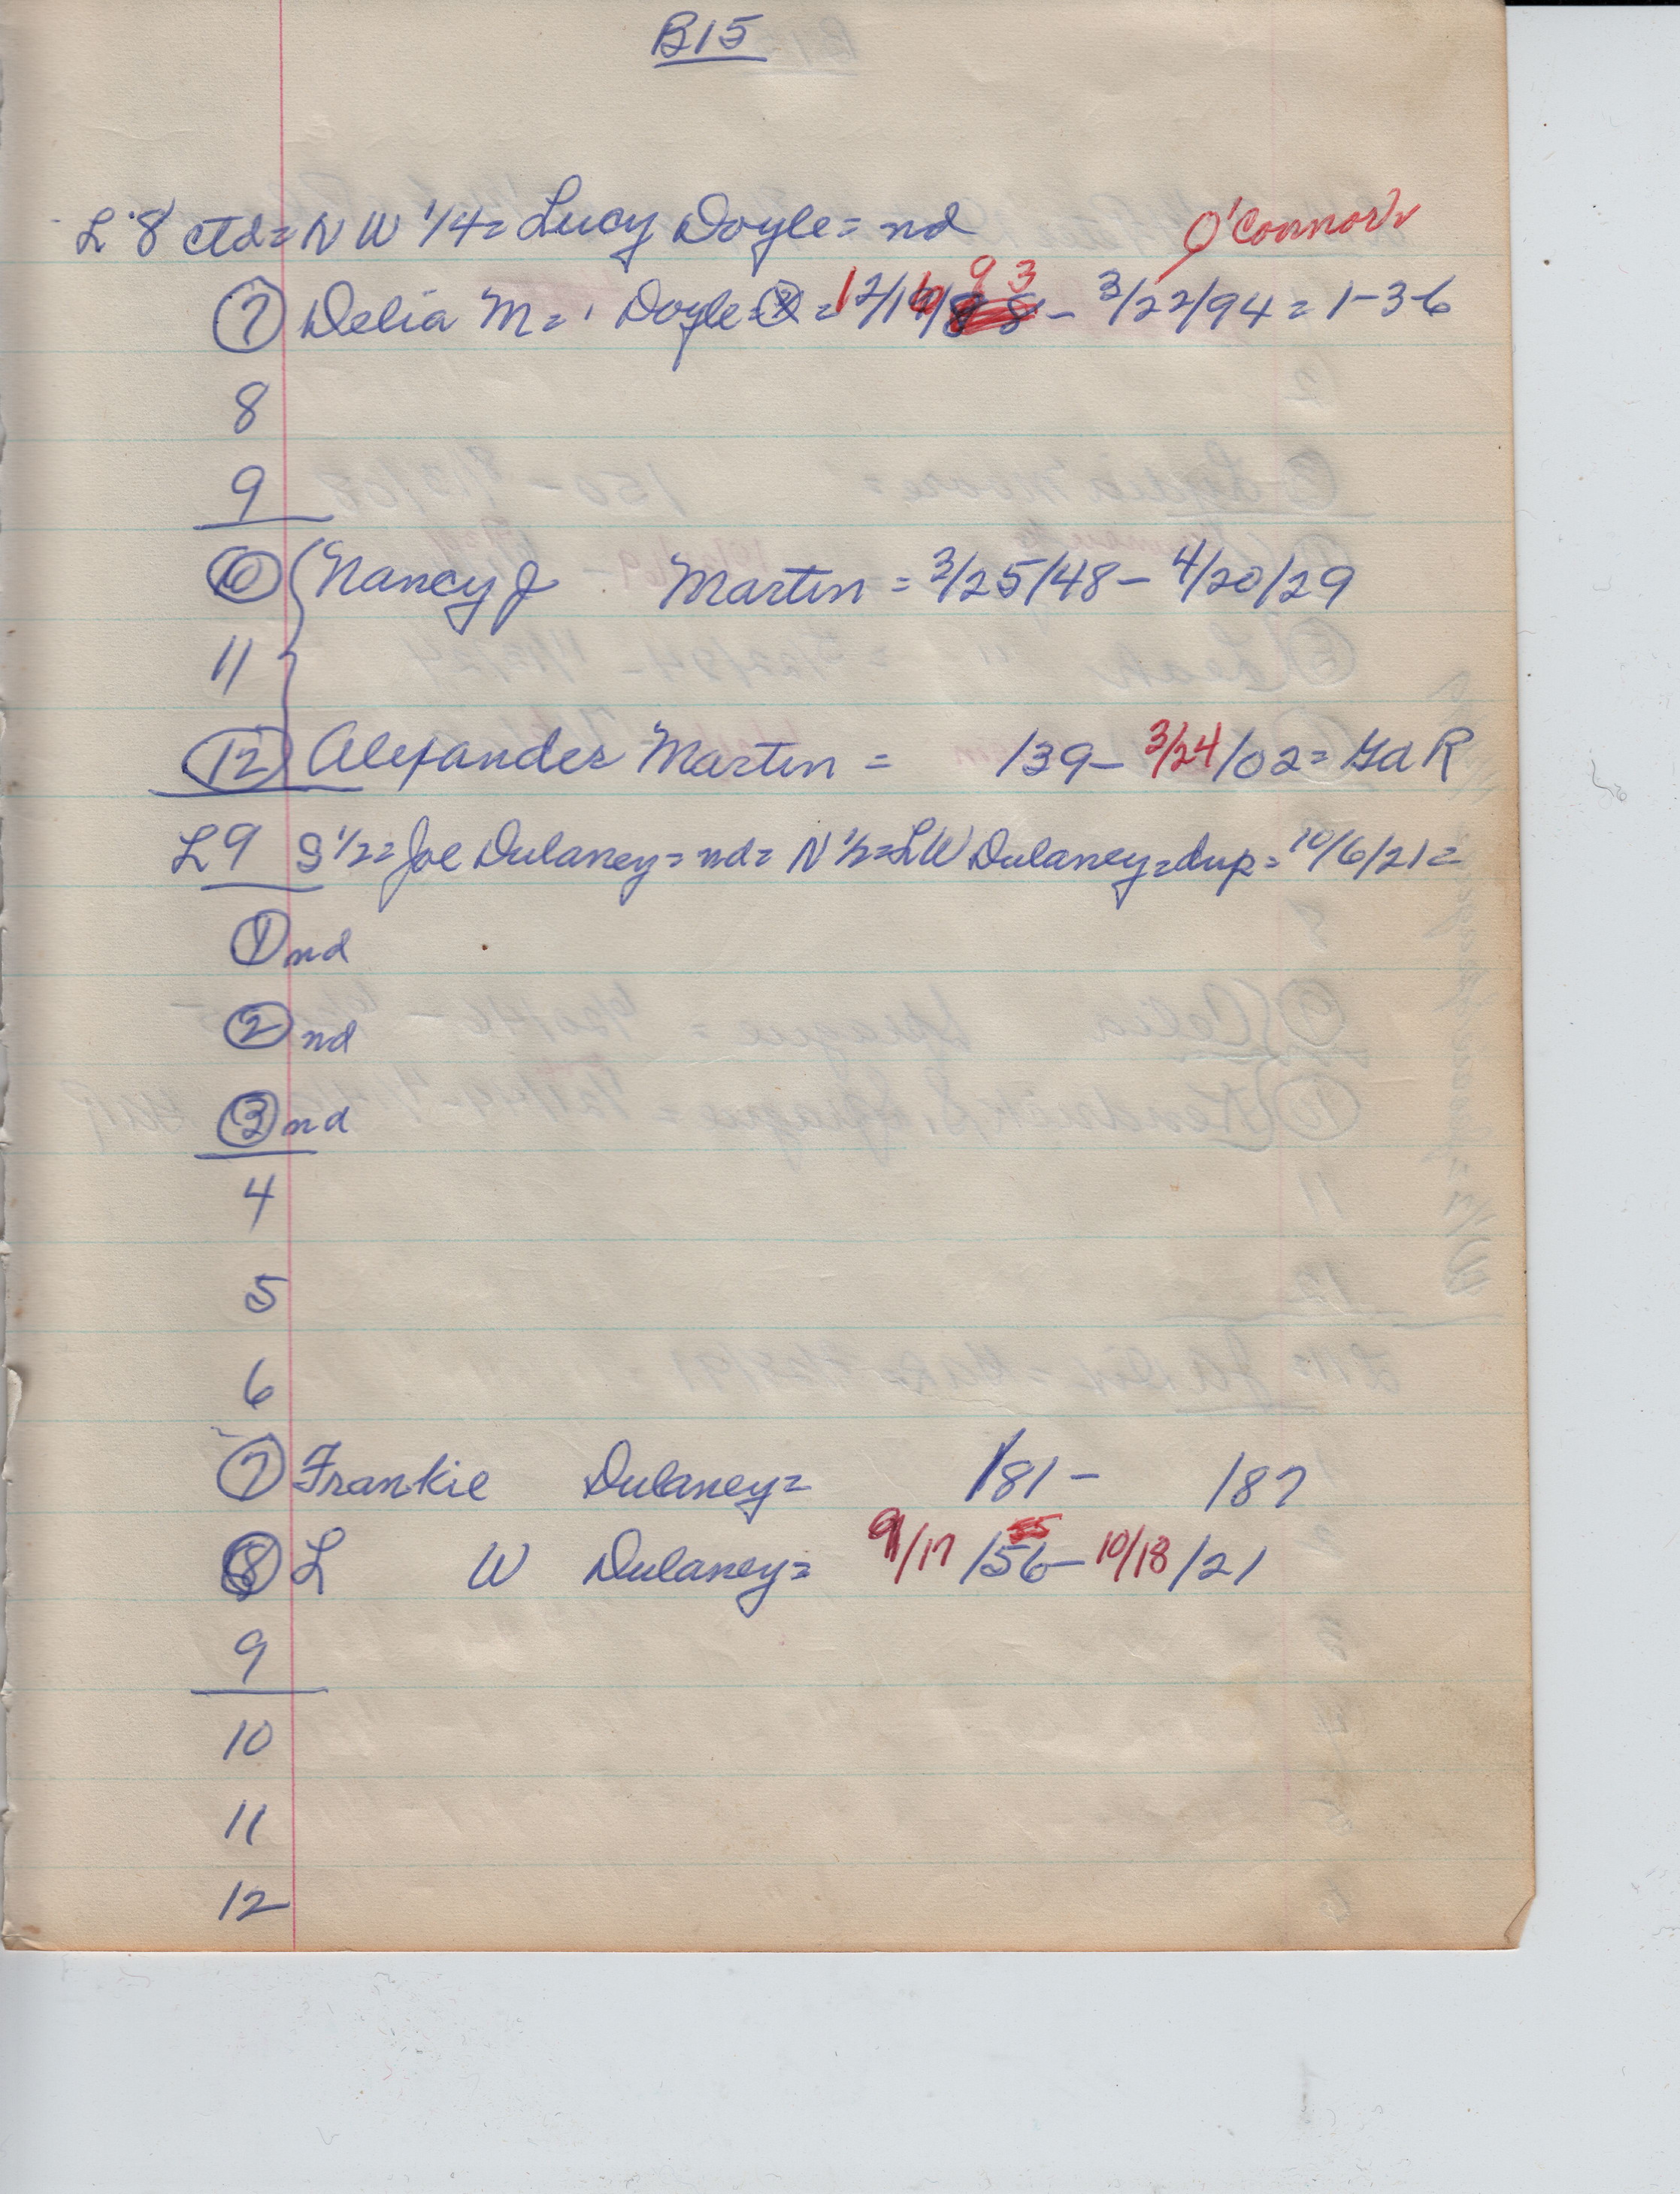 B15
L 8 ctd = NW 1/4 = Lucy Doyle = nd
O'Connor
7 Delia M = Doyle = = 12/16/93 - 3/22/94 = 1-3-6
8
9
10 Nancy J Martin = 3/25/48 - 4/20/29
11
12 Alexander Martin = /39 - 3/24/02 = Gd R
L9 S 1/2 = Joe Dulaney = nd = N 1/2 = LW Dulaney = dup = 10/6/21 =
1 nd
2 nd
3 nd
4
5
6
7 Frankie Dulaney = /81 - /87
8 L W Dulaney = 9/17/56 - 10/18/21
9
10
11
12